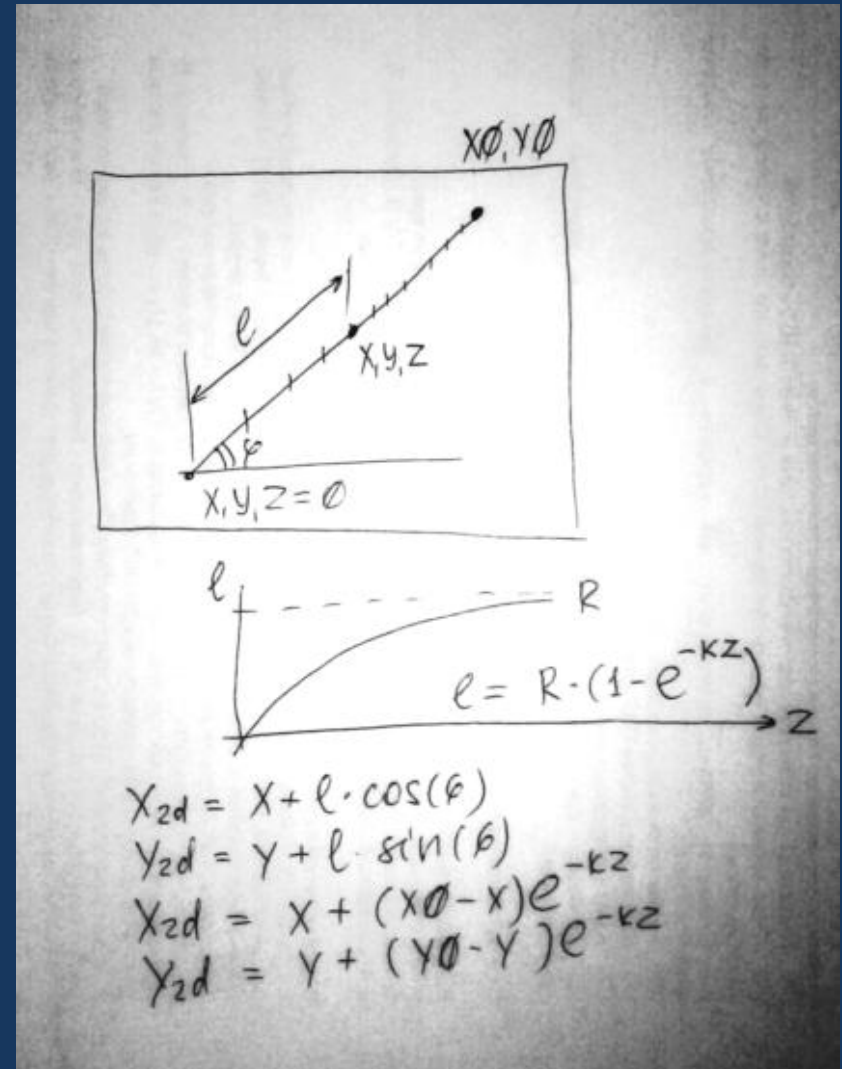 XØ, YØ
l
X, Y, Z
φ
X, Y, Z = Ø
l
R
l = R·(1-e^-KZ)
Z
X2d = X + l·cos(φ)
Y2d = Y + l·sin(φ)
X2d = X + (XØ-X)e^-KZ
Y2d = Y + (YØ-Y)e^-KZ